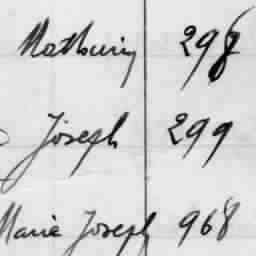 Mathurin 298
Joseph 299
Marie Joseph 968